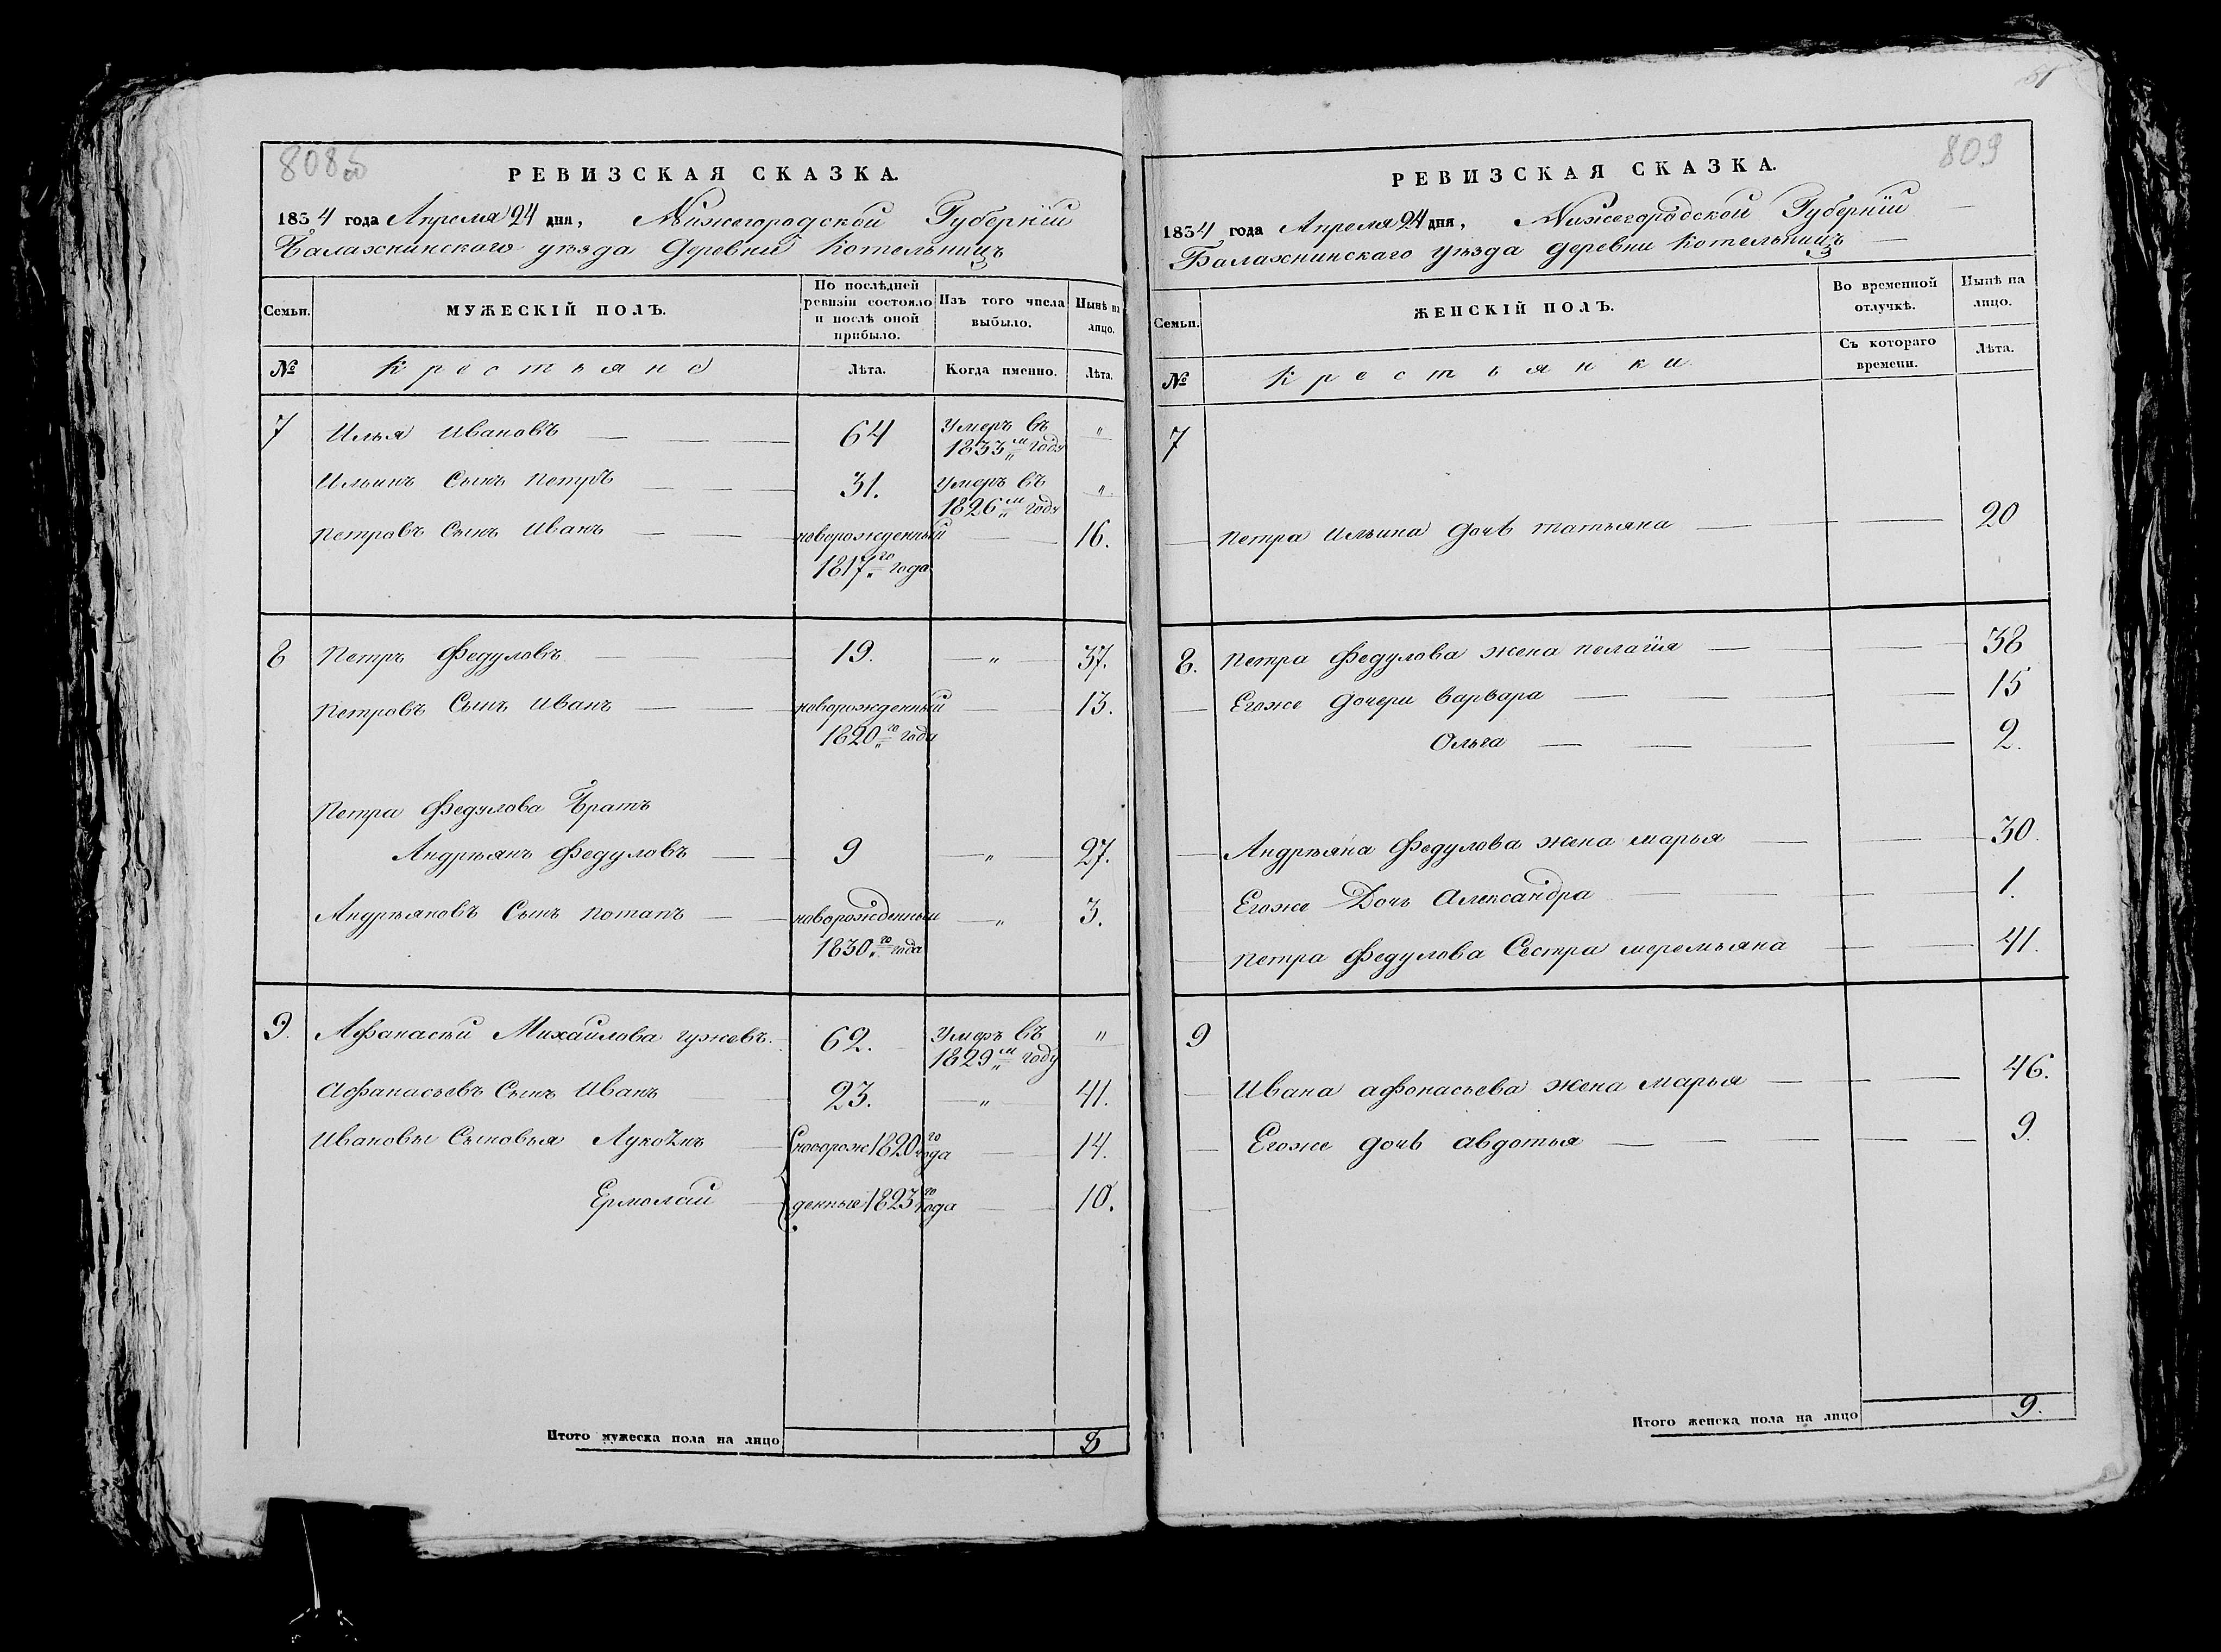 808 об
РЕВИЗСКАЯ СКАЗКА.
1834 года Апреля 24 дня, Нижегородской Губерніи
Балахнинского уѣзда Деревни Котельницъ
Семьи.
МУЖЕСКІЙ ПОЛЪ.
По послѣдней ревизіи состояло и послѣ оной прибыло.
Изъ того числа выбыло.
Нынѣ на лицо.
№
Крестьяне
Лѣта.
Когда именно.
Лѣта.
7 Илья Ивановъ — — — 64 Умеръ въ 1833м году "
Ильинъ Сынъ Петръ — — 31. Умеръ въ 1826м году "
Петровъ Сынъ Иванъ — — новорожденный 1817го года — 16.
8 Петръ Федуловъ — — 19. — " — 37.
Петровъ Сынъ Иванъ — — новорожденный 1820го года — 13.
Петра Федулова Братъ
Андреянъ Федуловъ — 9 — " — 27.
Андреяновъ Сынъ Потапъ — новорожденный 1830го года — " 3.
9. Афанасѣй Михайлова гужевъ. 62. Умеръ въ 1829м году "
Афанасьевъ Сынъ Иванъ 23. — " — 41.
Ивановы Сыновья новорож 1820го года — 14.
Ермолай — денные 1823го года — 10.
Итого мужеска пола на лицо 8
61
809
РЕВИЗСКАЯ СКАЗКА.
1834 года Апреля 24 дня, Нижегородской Губерніи —
Балахнинскаго уѣзда деревни Котельницъ —
Семьи.
ЖЕНСКІЙ ПОЛЪ.
Во временной отлучкѣ.
Нынѣ на лицо.
№
Крестьянки
Съ котораго времени.
Лѣта.
7
— Петра Ильина дочь татьяна — — — 20
8. Петра Федулова жена пелагія — — — 38
— Егоже дочери варвара — — — 15
Ольга — — — — 2.
— Андреяна Федулова жена марья — — 30.
Егоже Дочь Александра — — — 1.
— Петра Федулова Сестра меремьяна — — 41.
9
— Ивана афонасьева жена Марья — — — 46.
— Егоже дочь авдотья — — — — 9.
Итого женска пола на лицо 9.